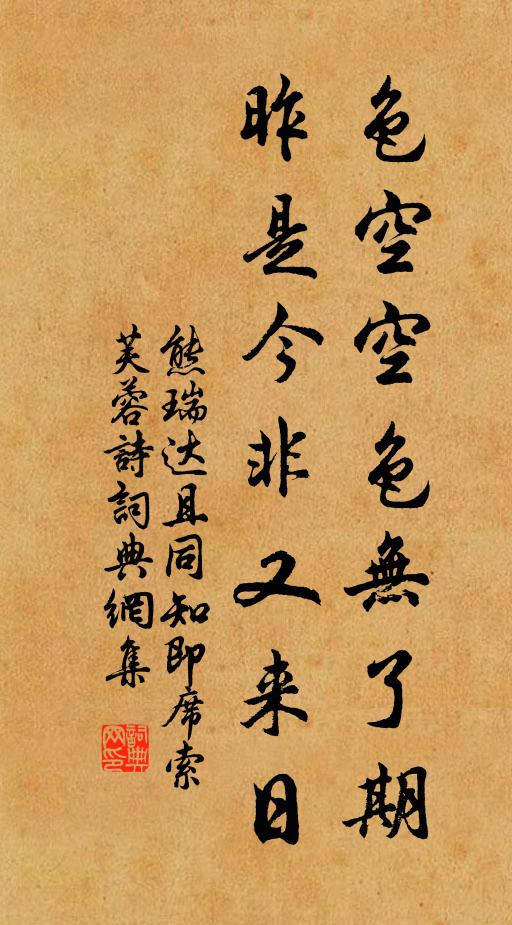 色空空色無了期
昨是今非又来日
熊瑞达且同知即席索
芙蓉詩詞典網集
詞典
网印